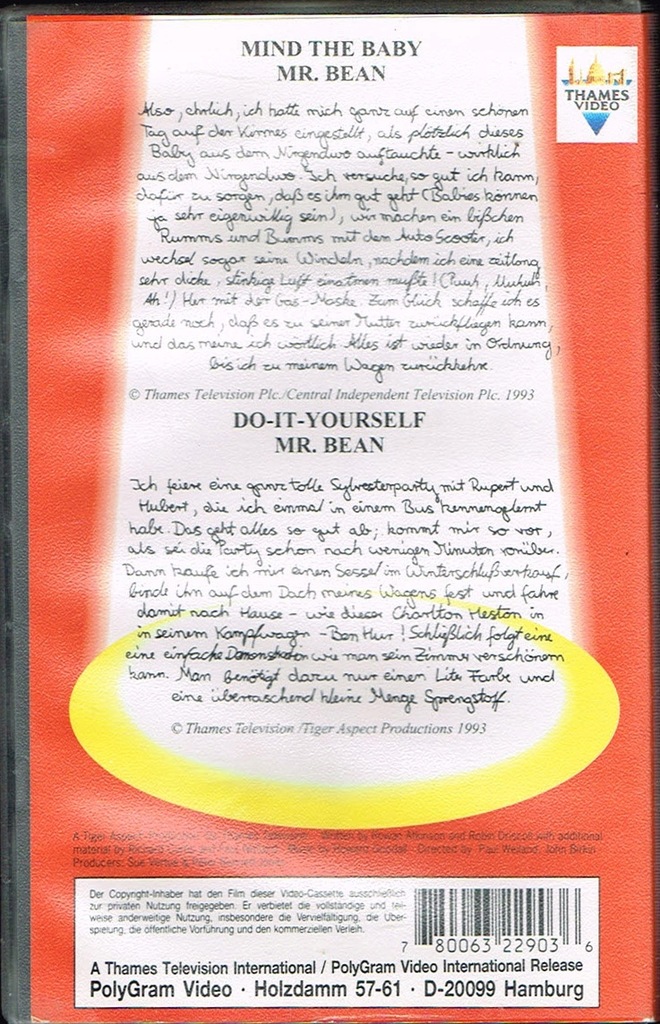 MIND THE BABY
MR. BEAN
THAMES
VIDEO
Also, ehrlich, ich hatte mich ganz auf einen schönen
Tag auf der Kirmes eingestellt, als plötzlich dieses
Baby aus dem Nirgendwo auftauchte - wirklich
aus dem Nirgendwo. Ich versuche, so gut ich kann,
dafür zu sorgen, daß es ihm gut geht (Babies können
ja sehr eigenwillig sein), wir machen ein bißchen
Rumms und Bumms mit dem Auto Scooter, ich
wechsel sogar seine Windeln, nachdem ich eine zeitlang
sehr dicke, stinkige Luft einatmen mußte! (Puuh,
Ah!) Her mit der Gas-Maske. Zum Glück schaffe ich es
gerade noch, daß es zu seiner Mutter zurückfliegen kann,
und das meine ich wörtlich Alles ist wieder in Ordnung,
bis ich zu meinem Wagen zurückkehre.
© Thames Television Plc./Central Independent Television Plc. 1993
DO-IT-YOURSELF
MR. BEAN
Ich feiere eine ganz tolle Sylvesterparty mit Rupert und
Hubert, die ich einmal in einem Bus kennengelernt
habe. Das geht alles so gut ab; kommt mir so vor,
als sei die Party schon nach wenigen Minuten vorüber.
Dann kaufe ich mir einen Sessel im Winterschlußverkauf,
binde ihn auf dem Dach meines Wagens fest und fahre
damit nach Hause - wie dieser Charlton Heston in
in seinem Kampfwagen - Ben Hur! Schließlich folgt eine
eine einfache Demonstration wie man sein Zimmer verschönern
kann. Man benötigt dazu nur einen Liter Farbe und
eine überraschend kleine Menge Sprengstoff.
© Thames Television /Tiger Aspect Productions 1993
A Tiger Aspect Thames Television Written by Rowan Atkinson and Robin Driscoll with additional
material by Richard Curtis Music by Howard Goodall Directed by Paul Weiland, John Birkin
Producers: Sue Vertue &
Der Copyright-Inhaber hat den Film dieser Video-Cassette ausschließlich
zur privaten Nutzung freigegeben. Er verbietet die vollständige und teil-
weise anderweitige Nutzung, insbesondere die Vervielfältigung, die Über-
spielung, die öffentliche Vorführung und den kommerziellen Verleih.
7 80063 22903 6
A Thames Television International / PolyGram Video International Release
PolyGram Video · Holzdamm 57-61 · D-20099 Hamburg